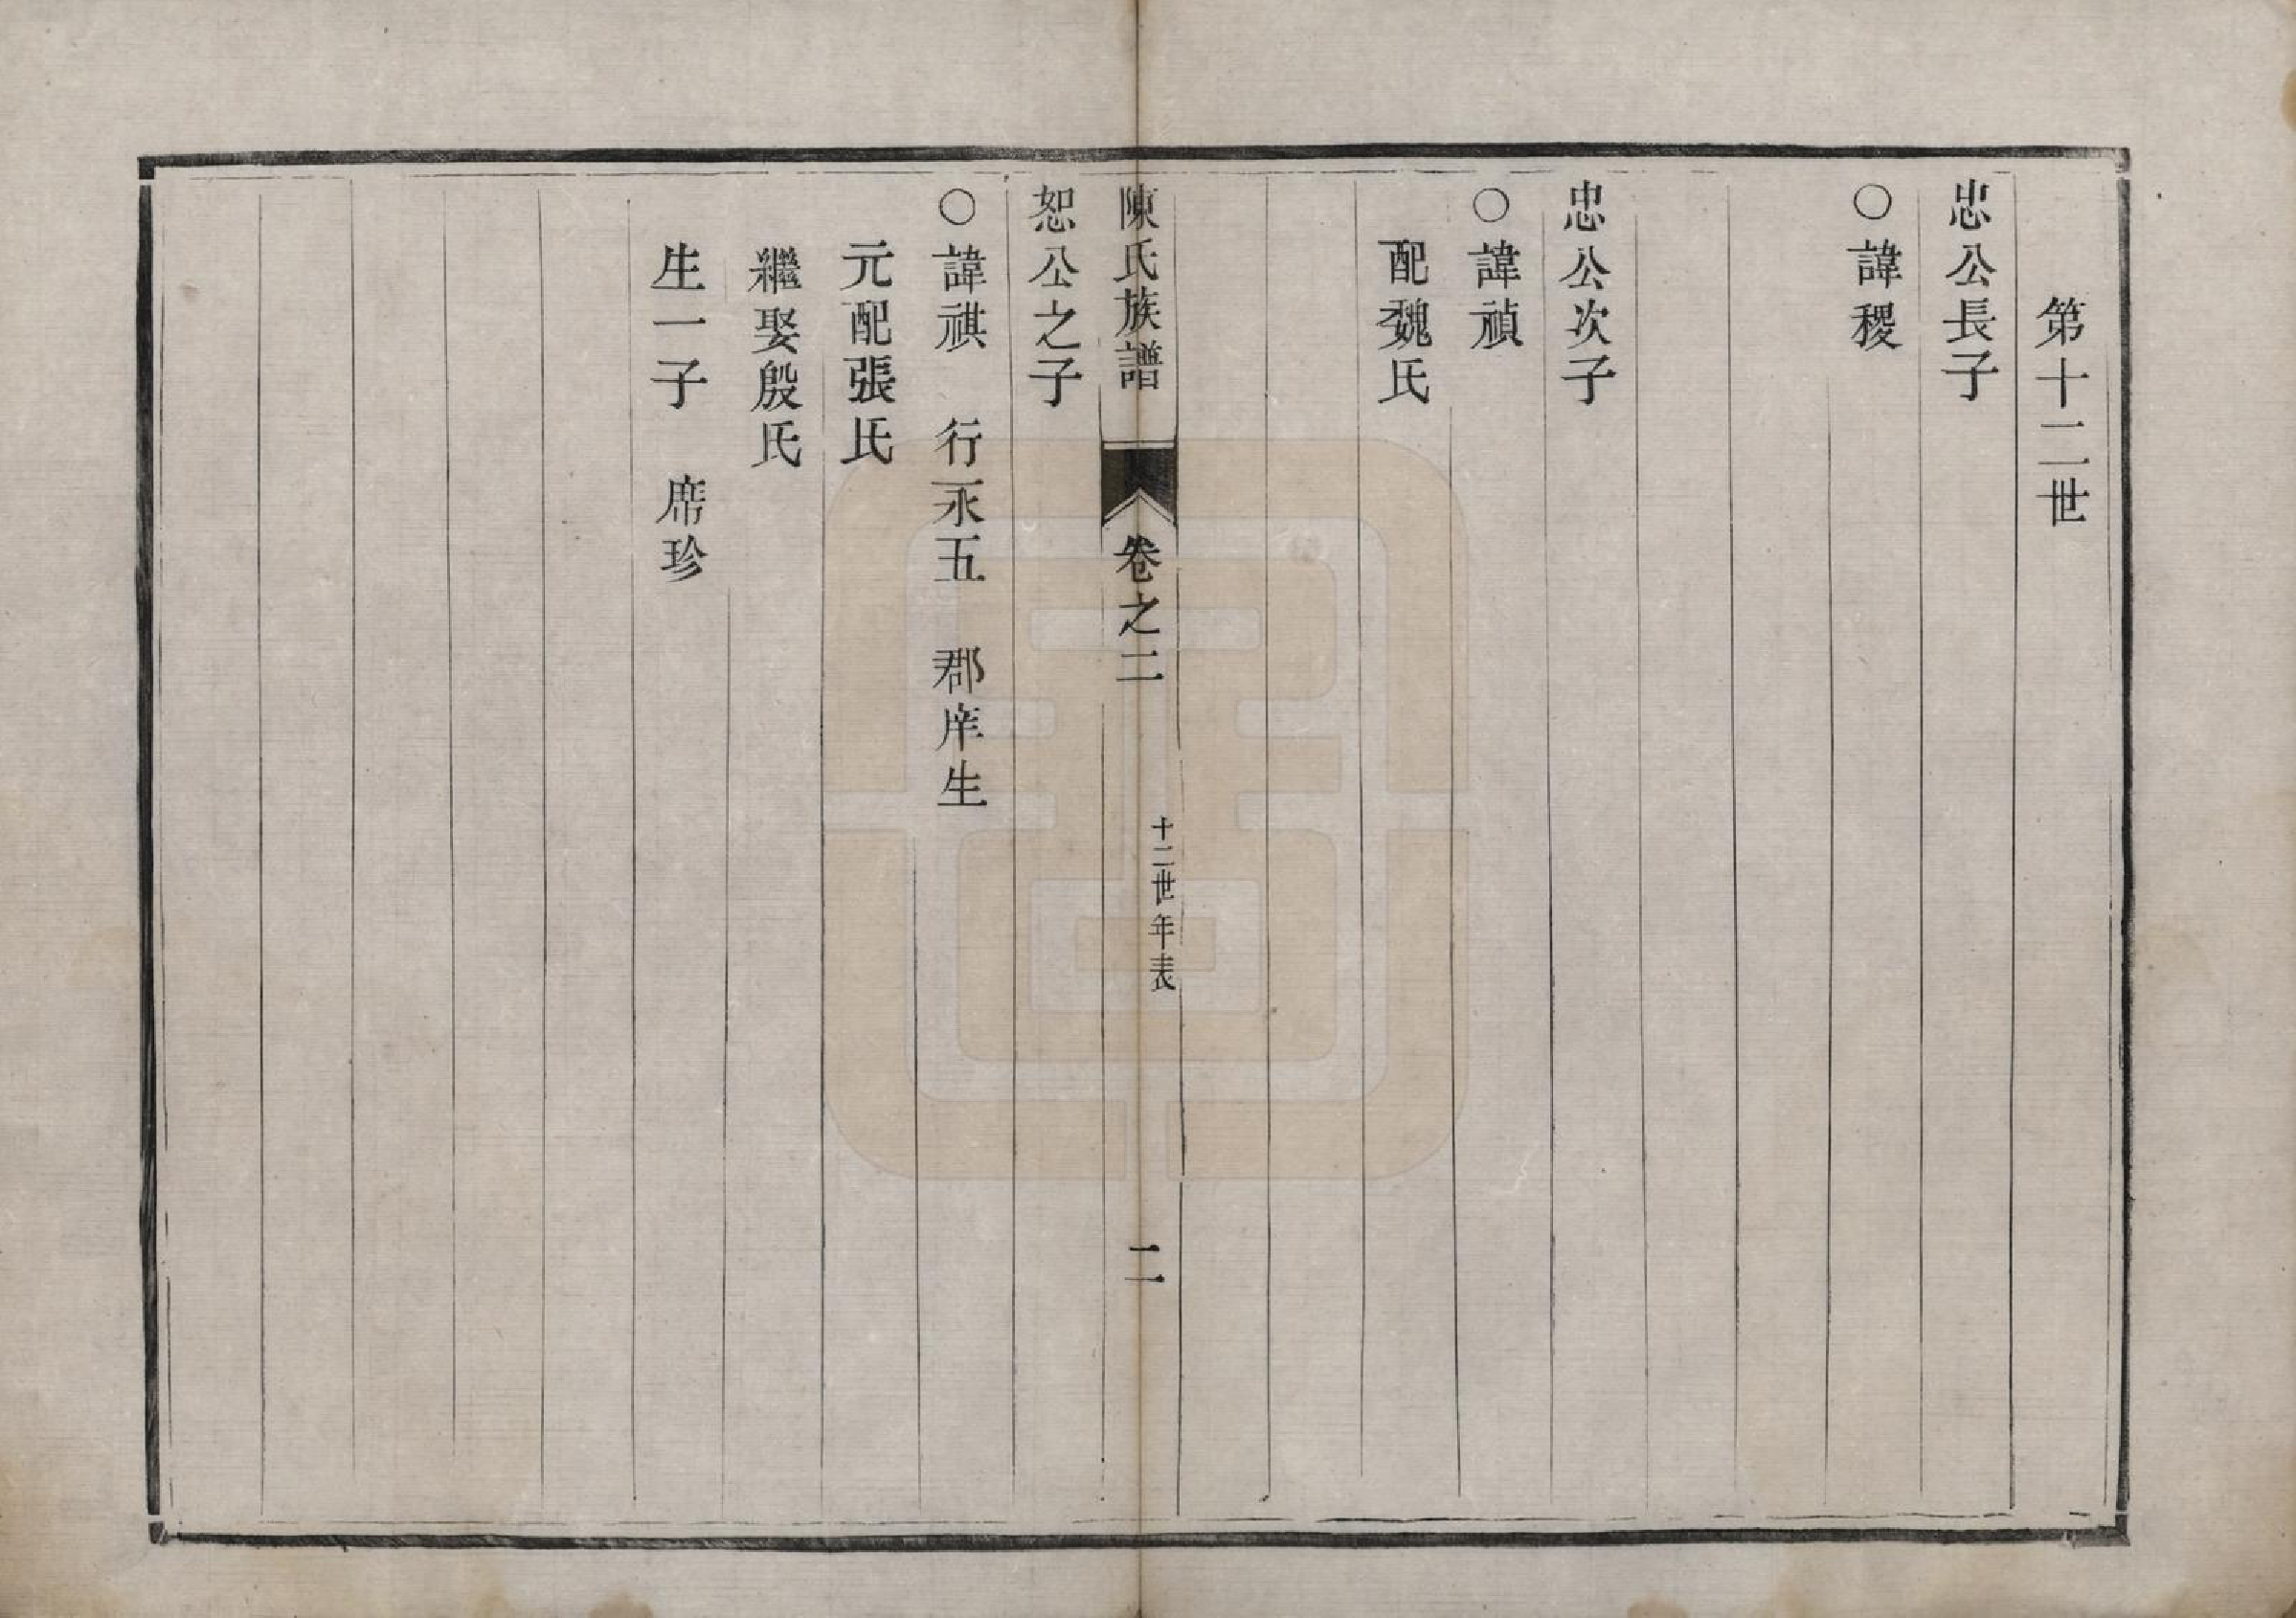 第十二世
忠公長子
○諱稷
忠公次子
○諱禎
配魏氏
陳氏族譜 卷之二 十二世年表 二
恕公之子
○諱祺 行永五 郡庠生
元配張氏
繼娶殷氏
生一子 席珍